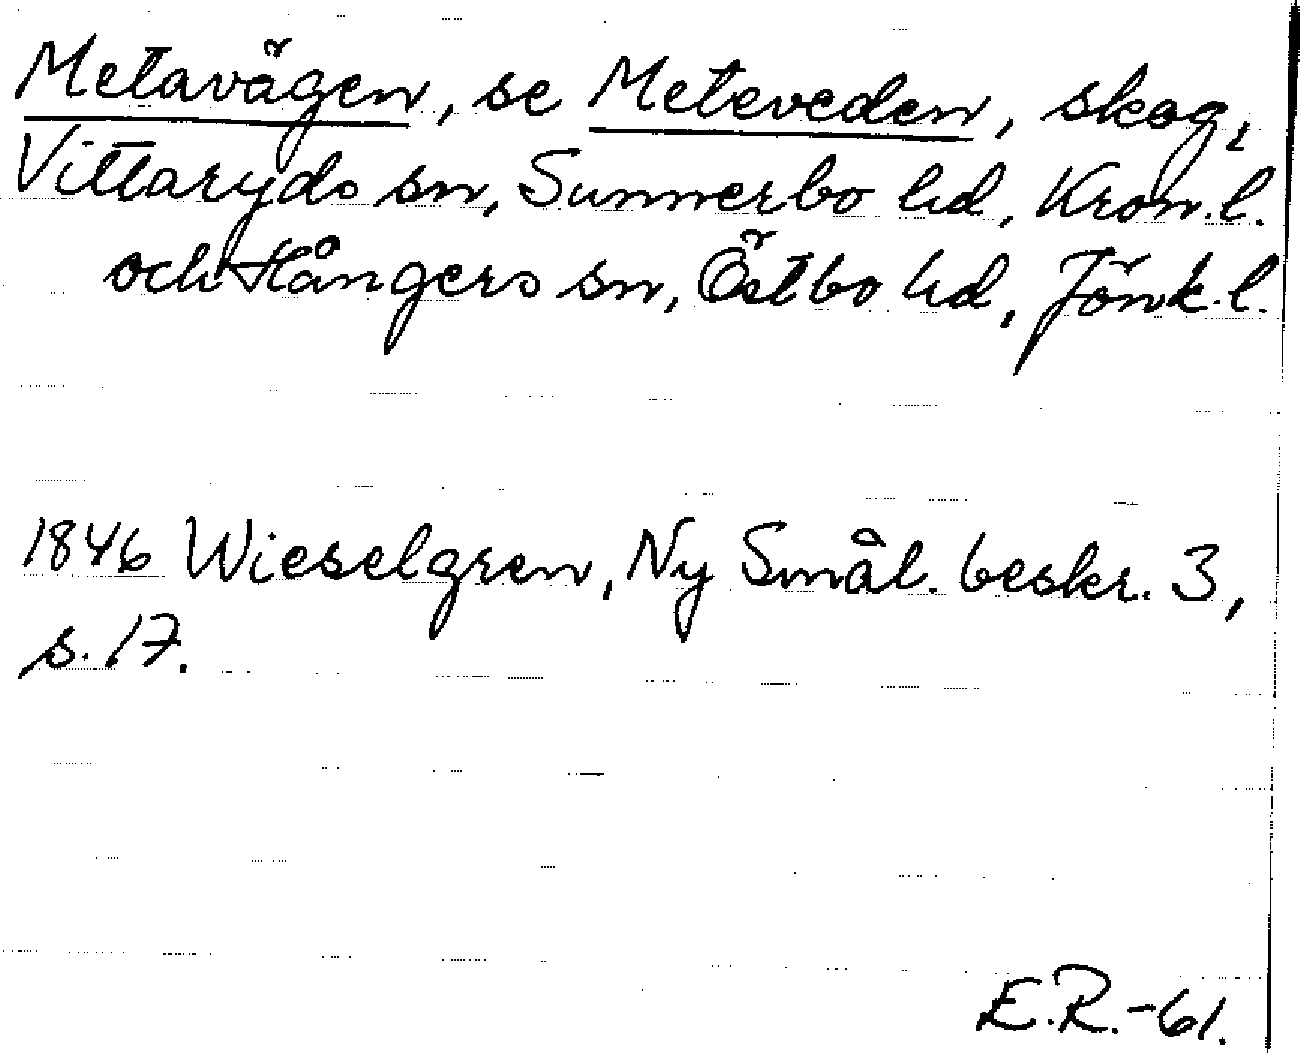 Metavägen, se Meteveden, skog,
Vittaryds sn, Sunnerbo hd, Kron.l.
och Hångers sn, Östbo hd, Jönk.l.
1846 Wieselgren, Ny Smål. beskr. 3,
s. 17.
E.R.-61.